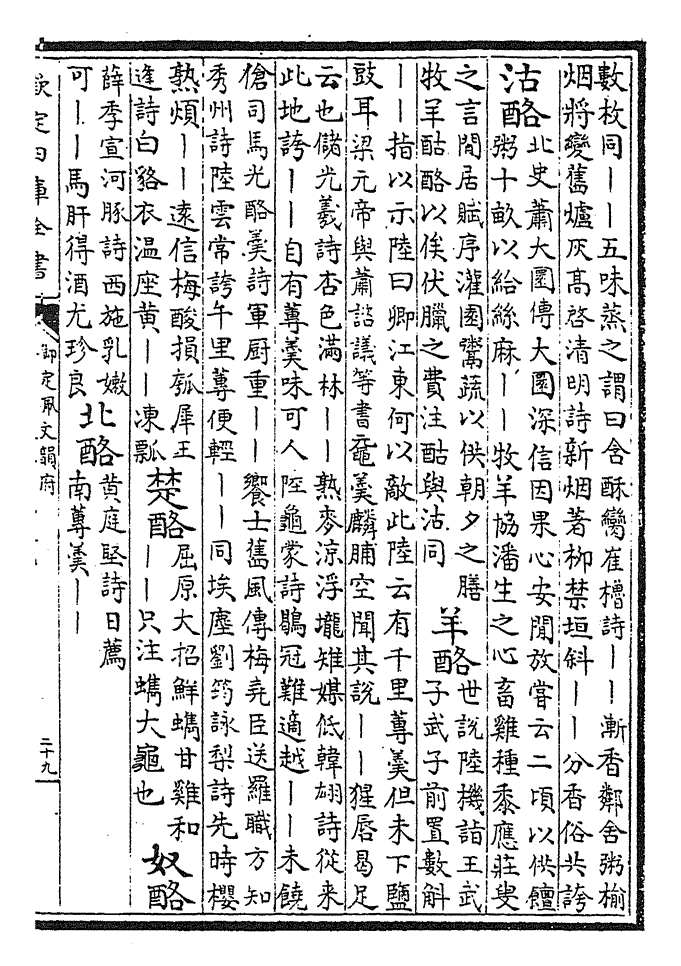 數枚同——五味蒸之謂曰含酥欒崔櫓詩——漸香鄰舍粥榆
烟將變舊爐灰高啓清明詩新烟著柳禁垣斜——分香俗共誇
沽酪
北史蕭大圜傳大圜深信因果心安閒放嘗云二頃以供饘
粥十畝以給絲麻——牧羊協潘生之心畜雞種黍應莊叟
之言閒居賦序灌園鬻蔬以供朝夕之膳
牧羊酤酪以俟伏臘之費注酤與沽同
羊酪
世說陸機詣王武
子武子前置數斛
——指以示陸曰卿江東何以敵此陸云有千里蓴羹但未下鹽
豉耳梁元帝與蕭諮議等書黿羹麟脯空聞其說——猩唇曷足
云也儲光羲詩杏色滿林——熟麥涼浮壠雉媒低韓翃詩從來
此地誇——自有蓴羹味可人陸龜蒙詩鶡冠難適越——未饒
傖司馬光酪羹詩軍厨重——饗士舊風傳梅堯臣送羅職方知
秀州詩陸雲常誇午里蓴便輕——同埃塵劉筠詠梨詩先時櫻
熟煩——遠信梅酸損瓠犀王
逢詩白貉衣温座黄——凍瓢
楚酪
屈原大招鮮蠵甘雞和
——只注蠵大龜也
奴酪
薛季宣河豚詩西施乳嫩
可——馬肝得酒尤珍良
北酪
黄庭堅詩日薦
南蓴羹——
欽定四庫全書
御定佩文韻府
二十九